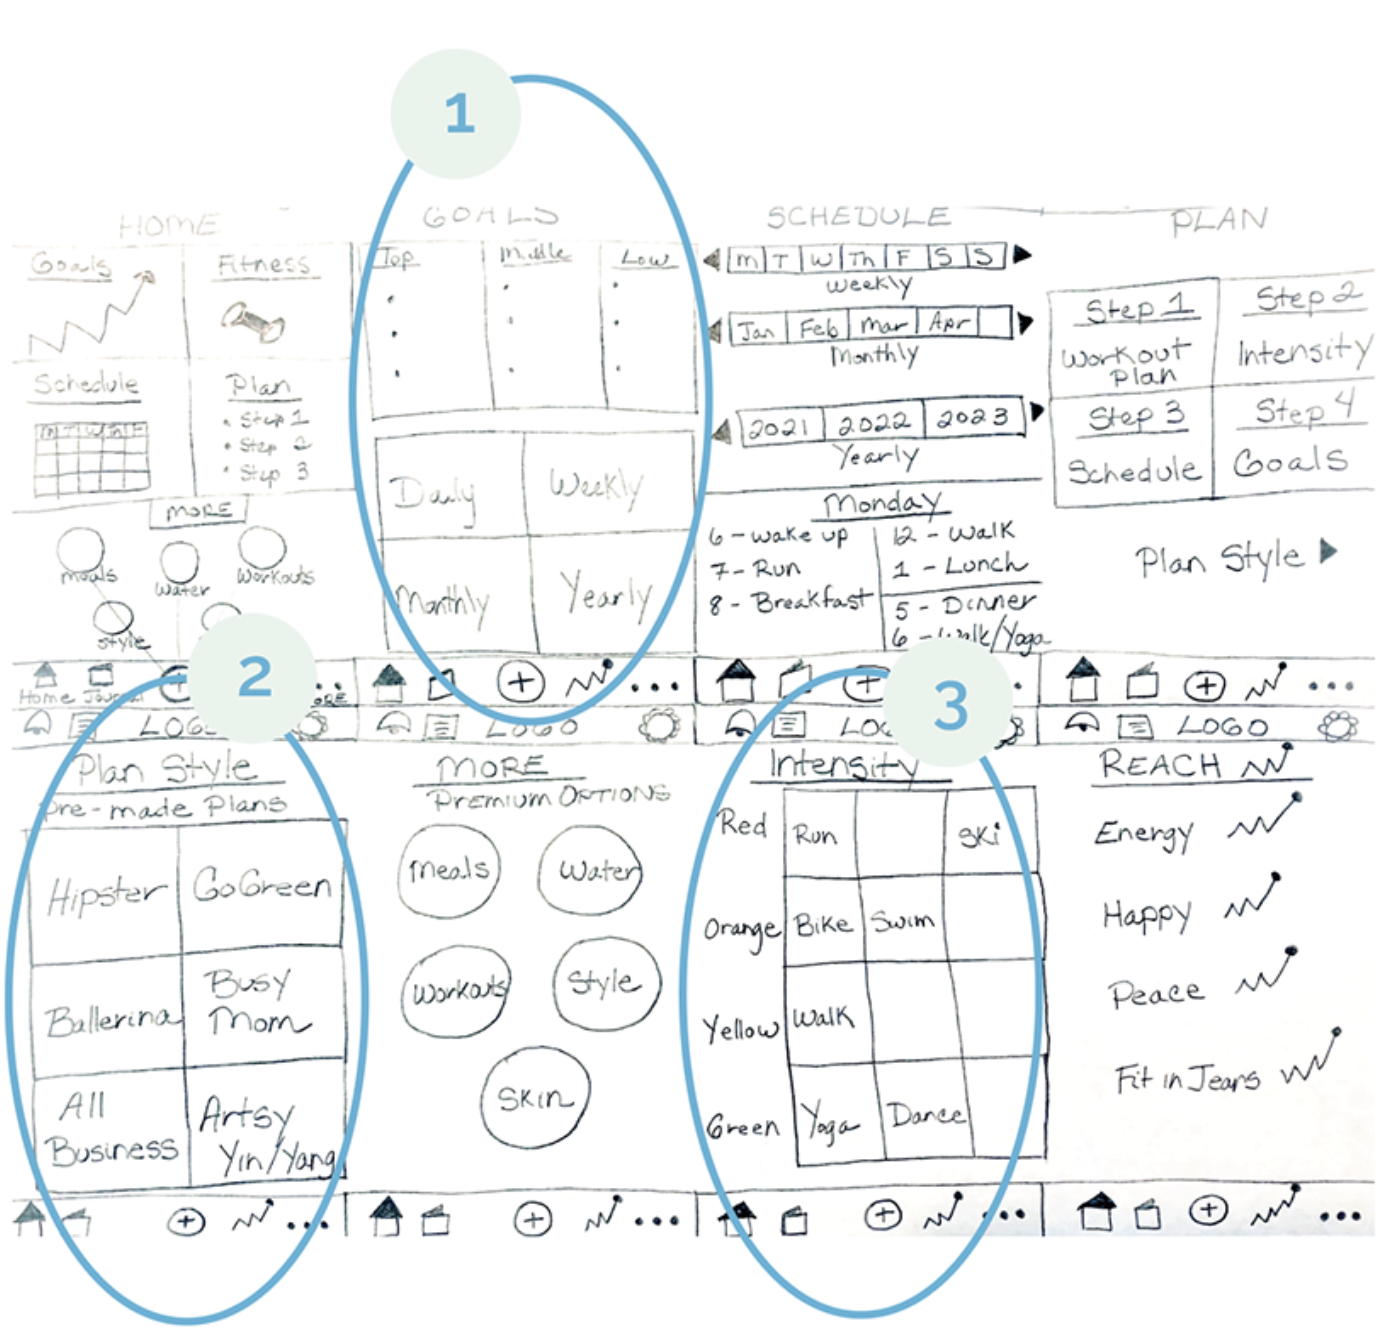 1
HOME
Goals
Fitness
Schedule
M T W Th F
Plan
• Step 1
• Step 2
• Step 3
MORE
meals
Water
Workouts
style
Home Journal
GOALS
Top
Middle
Low
Daily
Weekly
Monthly
Yearly
SCHEDULE
M T W Th F S S
Weekly
Jan Feb Mar Apr
Monthly
2021 2022 2023
Yearly
Monday
6 - wake up
7 - Run
8 - Breakfast
12 - Walk
1 - Lunch
5 - Dinner
6 - Walk/Yoga
PLAN
Step 1
Workout
Plan
Step 2
Intensity
Step 3
Schedule
Step 4
Goals
Plan Style
2
Plan Style
Pre-made Plans
Hipster
GoGreen
Ballerina
Busy
Mom
All
Business
Artsy
Yin/Yang
LOGO
MORE
PREMIUM OPTIONS
Meals
Water
Workouts
Style
Skin
3
Intensity
Red
Run
Ski
Orange
Bike
Swim
Yellow
Walk
Green
Yoga
Dance
LOGO
REACH
Energy
Happy
Peace
Fit in Jeans